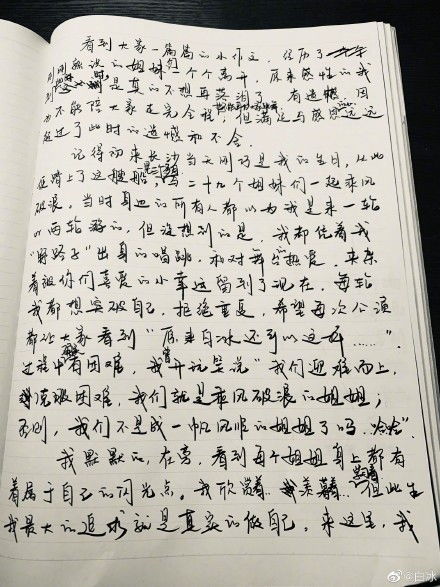 看到大家一篇篇的小作文，经历了
刚刚熟识的姐妹们一个个离开，原来感性的我
是真的不想再哭泣了，有遗憾，因
为不能陪大家走完全程，但满足与感恩远远
超过了此时的遗憾和不舍。
记得初来长沙当天刚巧是我的生日，从此
便踏上了这艘船，与二十九个姐妹们一起乘风
破浪，当时身边的所有人都以为我是来一轮
or两轮游的，但没想到的是，我却凭着我
“野路子”出身的唱跳，和对舞台热爱，来来
着被你们喜爱的小幸运留到了现在，每轮
我都想突破自己，拒绝重复，希望每次公演
都让大家看到“原来白冰还可以这样……”。
过程中有困难，我曾开玩笑说“我们迎难而上，
克服困难，我们就是乘风破浪的姐姐；
否则，我们不是成一帆风顺的姐姐了吗，哈哈”。
我默默的，在旁，看到每个姐姐身上都有
着属于自己的闪光点。我欣赏着…羡慕着…但此生
我最大的追求就是真实的做自己，来这里，我
@白冰